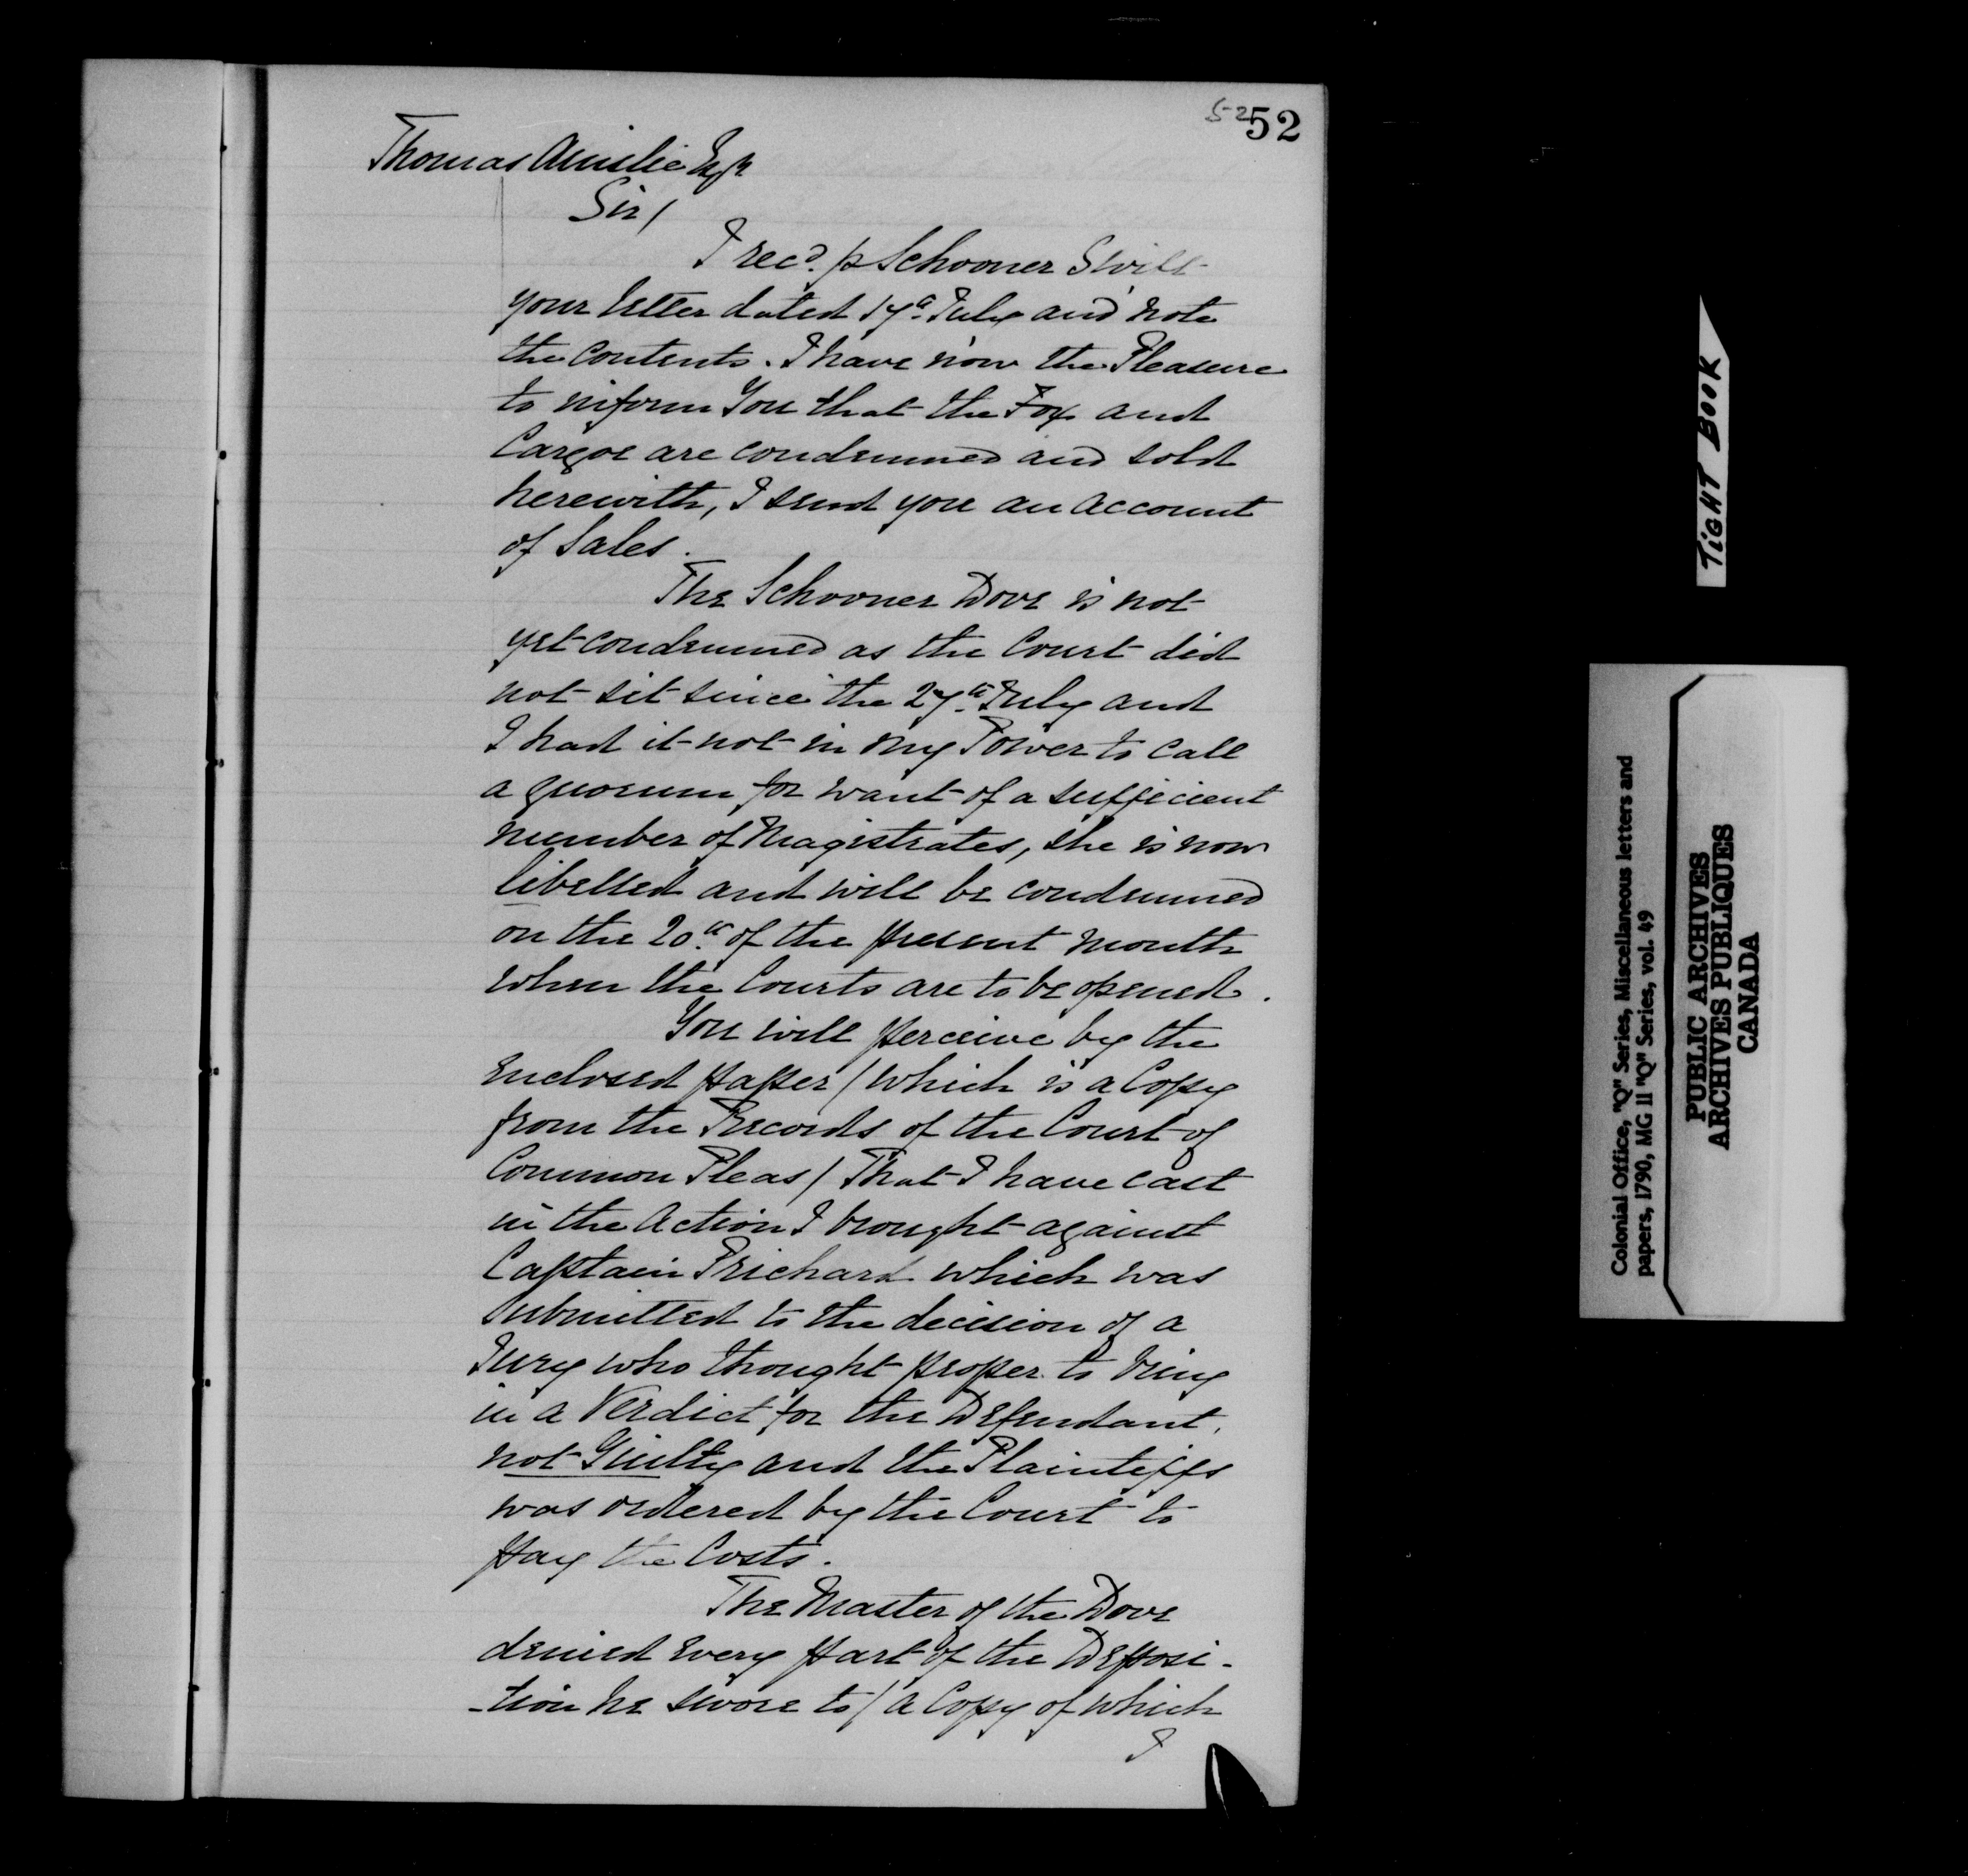 52 52
Thomas Ainslie Esqr
Sir/
I recd. p Schooner Swift
your letter dated 17th. July and note
the contents. I have now the Pleasure
to inform You that the Fox and
Cargoe are condemned and sold
herewith, I send you an account
of Sales.
The Schooner Dove is not
yet condemned as the Court did
not sit since the 27th. July and
I had it not in my Power to call
a quorum for want of a sufficient
number of Magistrates, she is now
libelled and will be condemned
on the 20th. of the present month
when the Courts are to be opened.
You will perceive by the
Enclosed paper / which is a Copy
from the Records of the Court of
Common Pleas / That I have cast
in the Action I brought against
Captain Prichard which was
submitted to the decision of a
Jury who thought proper to bring
in a Verdict for the Defendant,
not Guilty and the Plaintiffs
was ordered by the Court to
pay the Costs.
The Master of the Dove
denied every part of the Deposi-
-tion he swore to / a Copy of which
I
TIGHT BOOK
Colonial Office, "Q" Series, Miscellaneous letters and
papers, 1790, MG 11 "Q" Series, vol. 49
PUBLIC ARCHIVES
ARCHIVES PUBLIQUES
CANADA